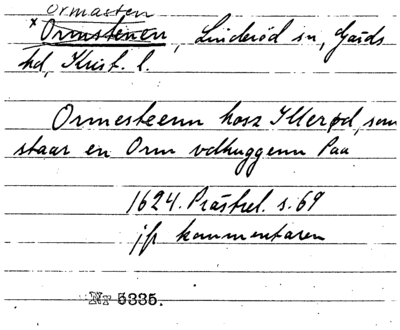 Ormasten
*Ormstenen, Linderöd sn, Gärds
hd, Krist. l.
Ormesteenn hosz Illerød, som
staar en Orm vdhuggenn Paa
1624. Prästrel. s. 69
jfr kommentaren
Nr 5335.